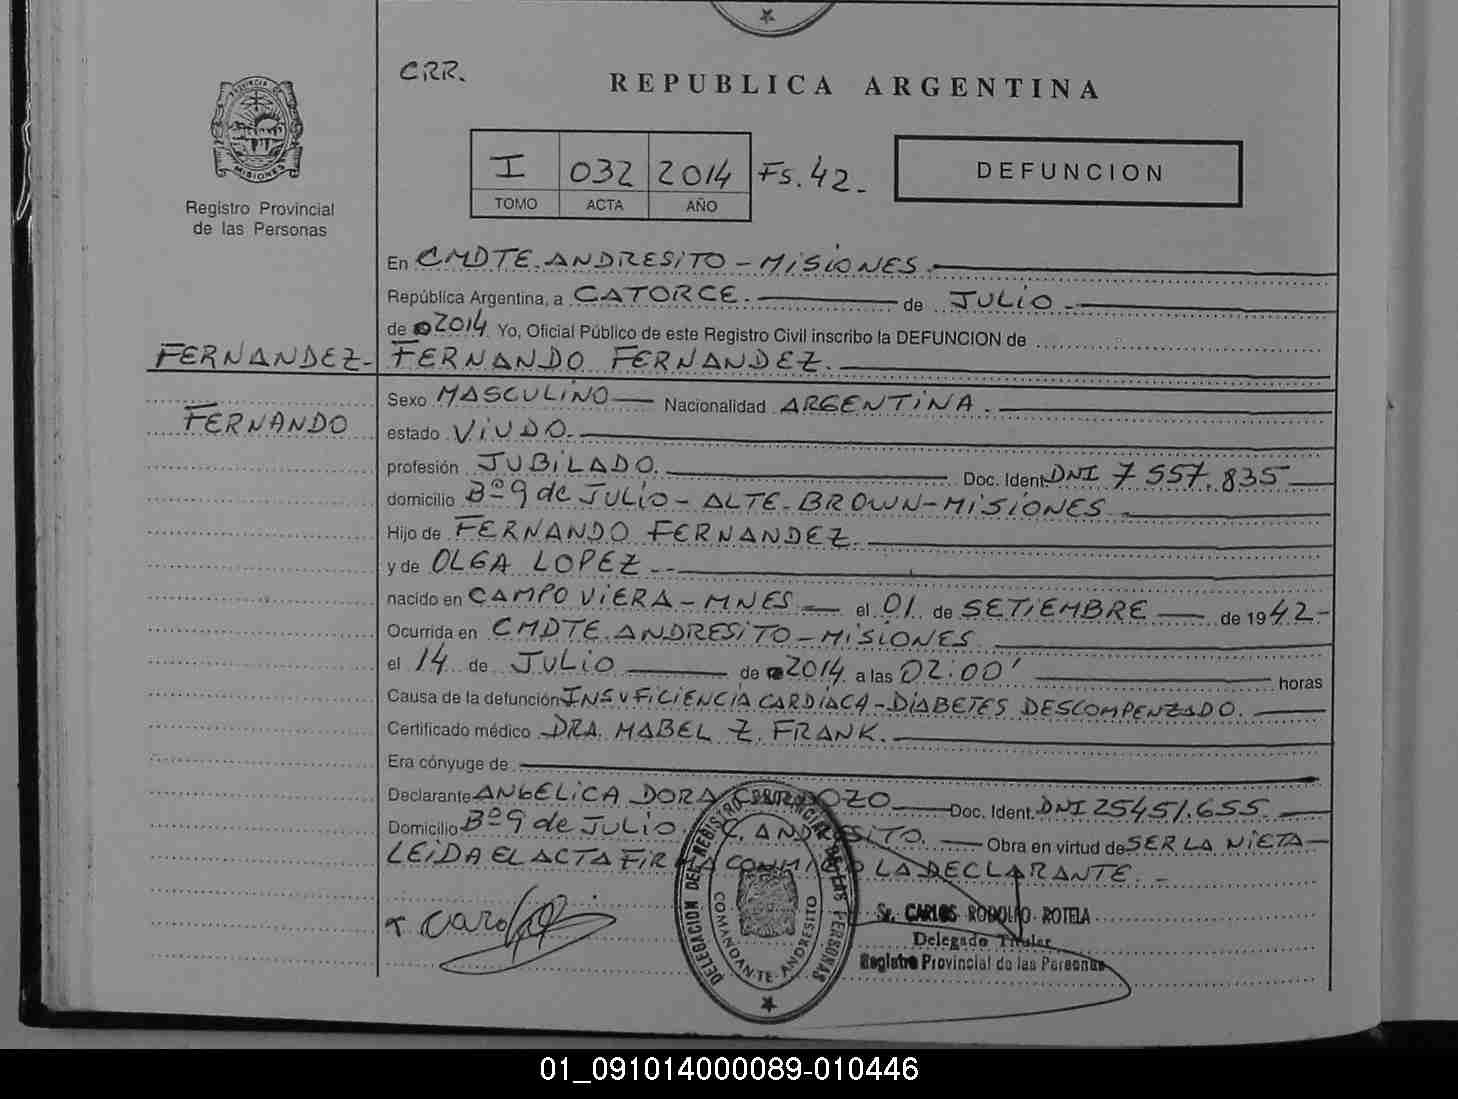 CRR.
REPUBLICA ARGENTINA
PROVINCIA DE
MISIONES
Registro Provincial
de las Personas
I 032 2014 Fs. 42.-
TOMO ACTA AÑO
DEFUNCION
En CMDTE. ANDRESITO - MISIONES.
República Argentina, a CATORCE. de JULIO.
de 2014 Yo, Oficial Público de este Registro Civil inscribo la DEFUNCION de
FERNANDEZ- FERNANDO FERNANDEZ.
Sexo MASCULINO Nacionalidad ARGENTINA.
FERNANDO
estado VIUDO.
profesión JUBILADO. Doc. Ident. DNI 7 557.835
domicilio Bº 9 de JULIO - ALTE. BROWN - MISIONES
Hijo de FERNANDO FERNANDEZ.
y de OLGA LOPEZ.-
nacido en CAMPO VIERA - MNES el 01 de SETIEMBRE de 1942-
Ocurrida en CMDTE. ANDRESITO - MISIONES
el 14 de JULIO de 2014 a las 02:00' horas
Causa de la defunción INSUFICIENCIA CARDIACA - DIABETES DESCOMPENZADO.
Certificado médico DRA. MABEL Z. FRANK.
Era cónyuge de
Declarante ANGELICA DORA CARDOZO Doc. Ident. DNI 25451.655.
Domicilio Bº 9 de JULIO. C. ANDRESITO. Obra en virtud de SER LA NIETA
LEIDA EL ACTA FIRMA CONMIGO LA DECLARANTE.-
DELEGACION DEL REGISTRO PROVINCIAL DE LAS PERSONAS
COMANDANTE ANDRESITO
Sr. CARLOS RODOLFO ROTELA
Delegado Titular
Registro Provincial de las Personas
01_091014000089-010446